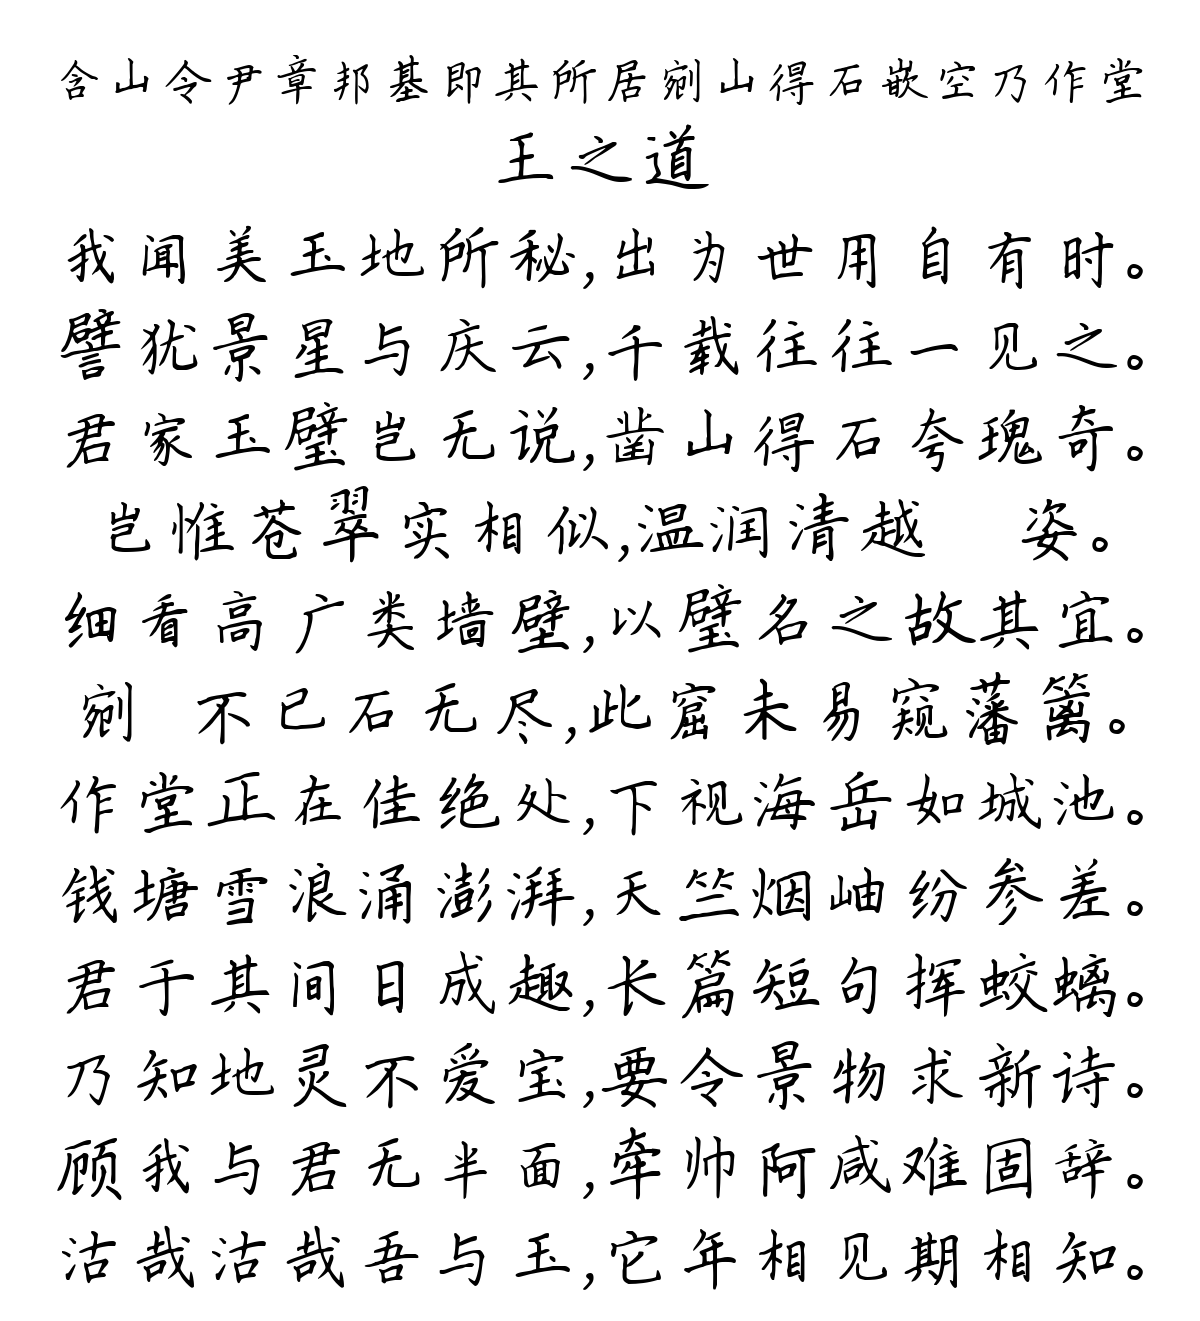 含山令尹章邦基即其所居剜山得石嵌空乃作堂
王之道
我闻美玉地所秘,出为世用自有时。
譬犹景星与庆云,千载往往一见之。
君家玉璧岂无说,凿山得石夸瑰奇。
岂惟苍翠实相似,温润清越 姿。
细看高广类墙壁,以璧名之故其宜。
剜 不已石无尽,此窟未易窥藩篱。
作堂正在佳绝处,下视海岳如城池。
钱塘雪浪涌澎湃,天竺烟岫纷参差。
君于其间日成趣,长篇短句挥蛟螭。
乃知地灵不爱宝,要令景物求新诗。
顾我与君无半面,牵帅阿咸难固辞。
沽哉沽哉吾与玉,它年相见期相知。